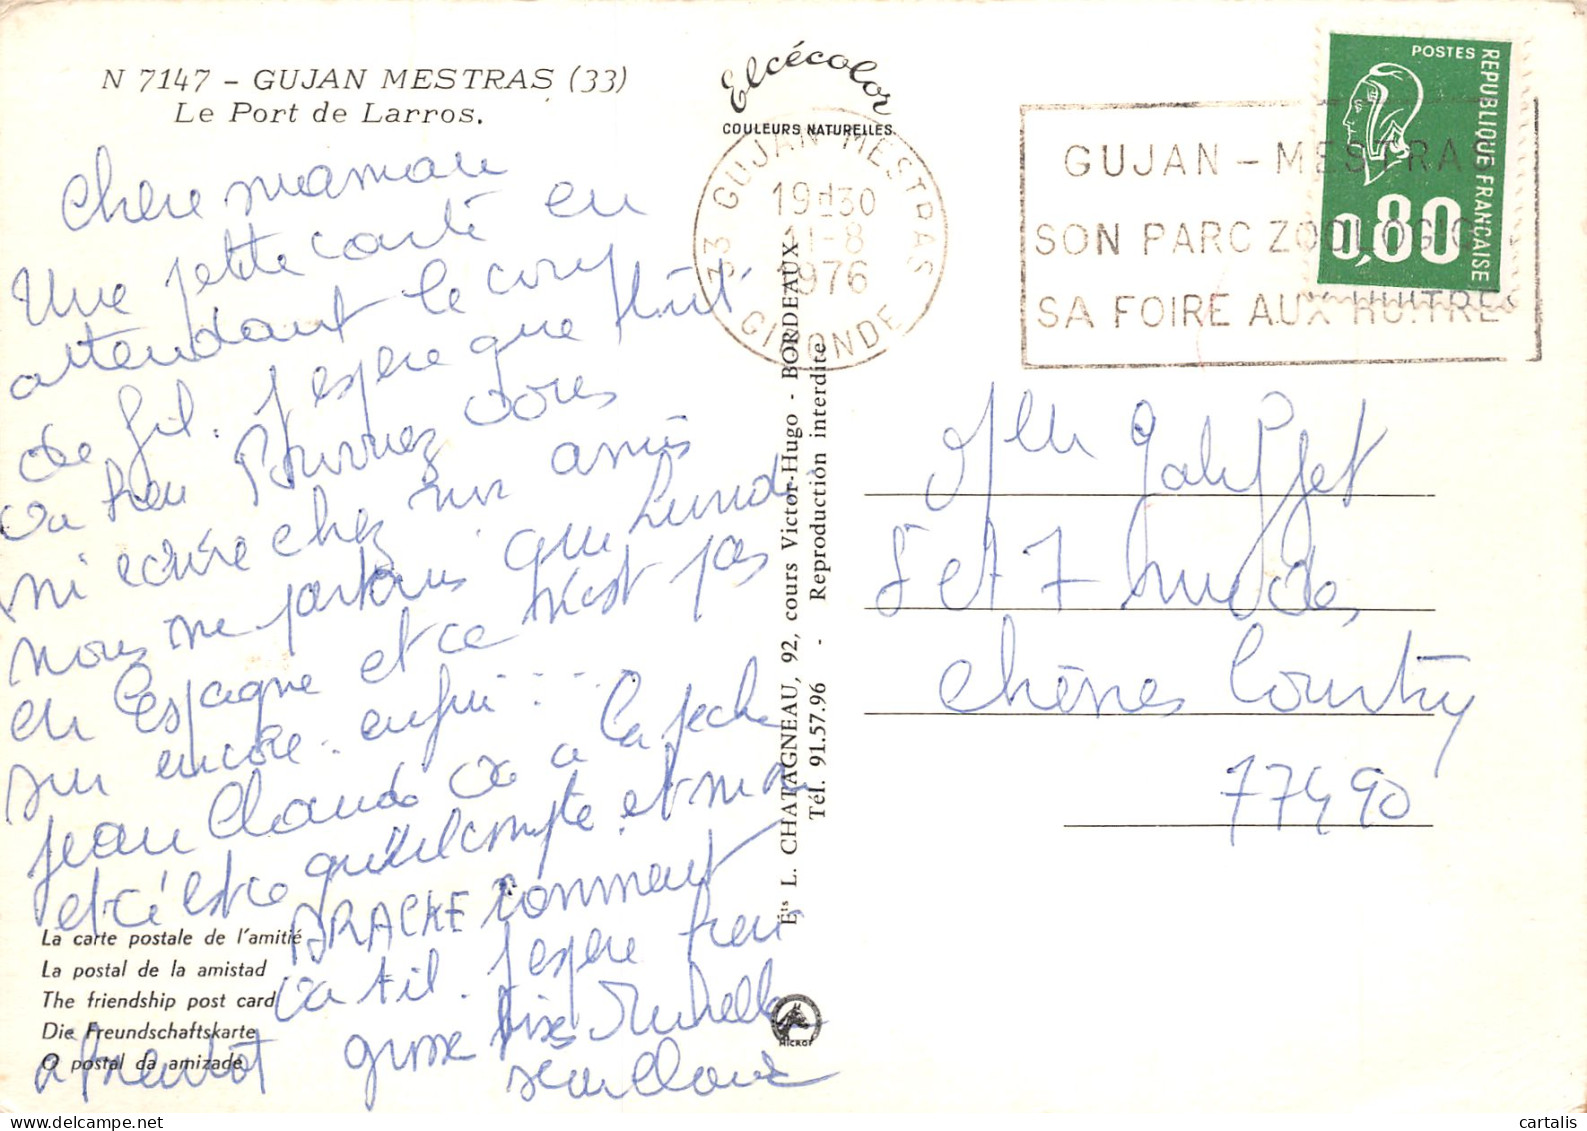 N 7147 – GUJAN MESTRAS (33)
Le Port de Larros.
Elcécolor
COULEURS NATURELLES
33 GUJAN-MESTRAS
19H30
11-8
1976
GIRONDE
GUJAN – MESTRAS
SON PARC ZOOLOGIQ
SA FOIRE AUX HUITRES
POSTES
REPUBLIQUE FRANCAISE
0,80
chere maman
Une petite carte en
attendant le coup
de fil. J'espere que
va bien Pourriez vous
m'ecrire chez nos amis
nous ne partons que Lundi
en Espagne et ce n'est pas
sur encore. enfin ...
Jean Claude va a la peche
et c'est ce qu'il compte et mon
DRACKE comment
va t-il. J'espere bien
a bientôt grosse bises
Jean Claude
Galiffet
5 et 7 rue des
chênes Courtry
77490
Éts L. CHATAGNEAU, 92, cours Victor-Hugo - BORDEAUX
Tél. 91.57.96 - Reproduction interdite
La carte postale de l'amitié
La postal de la amistad
The friendship post card
Die Freundschaftskarte
O postal da amizade
cartalis